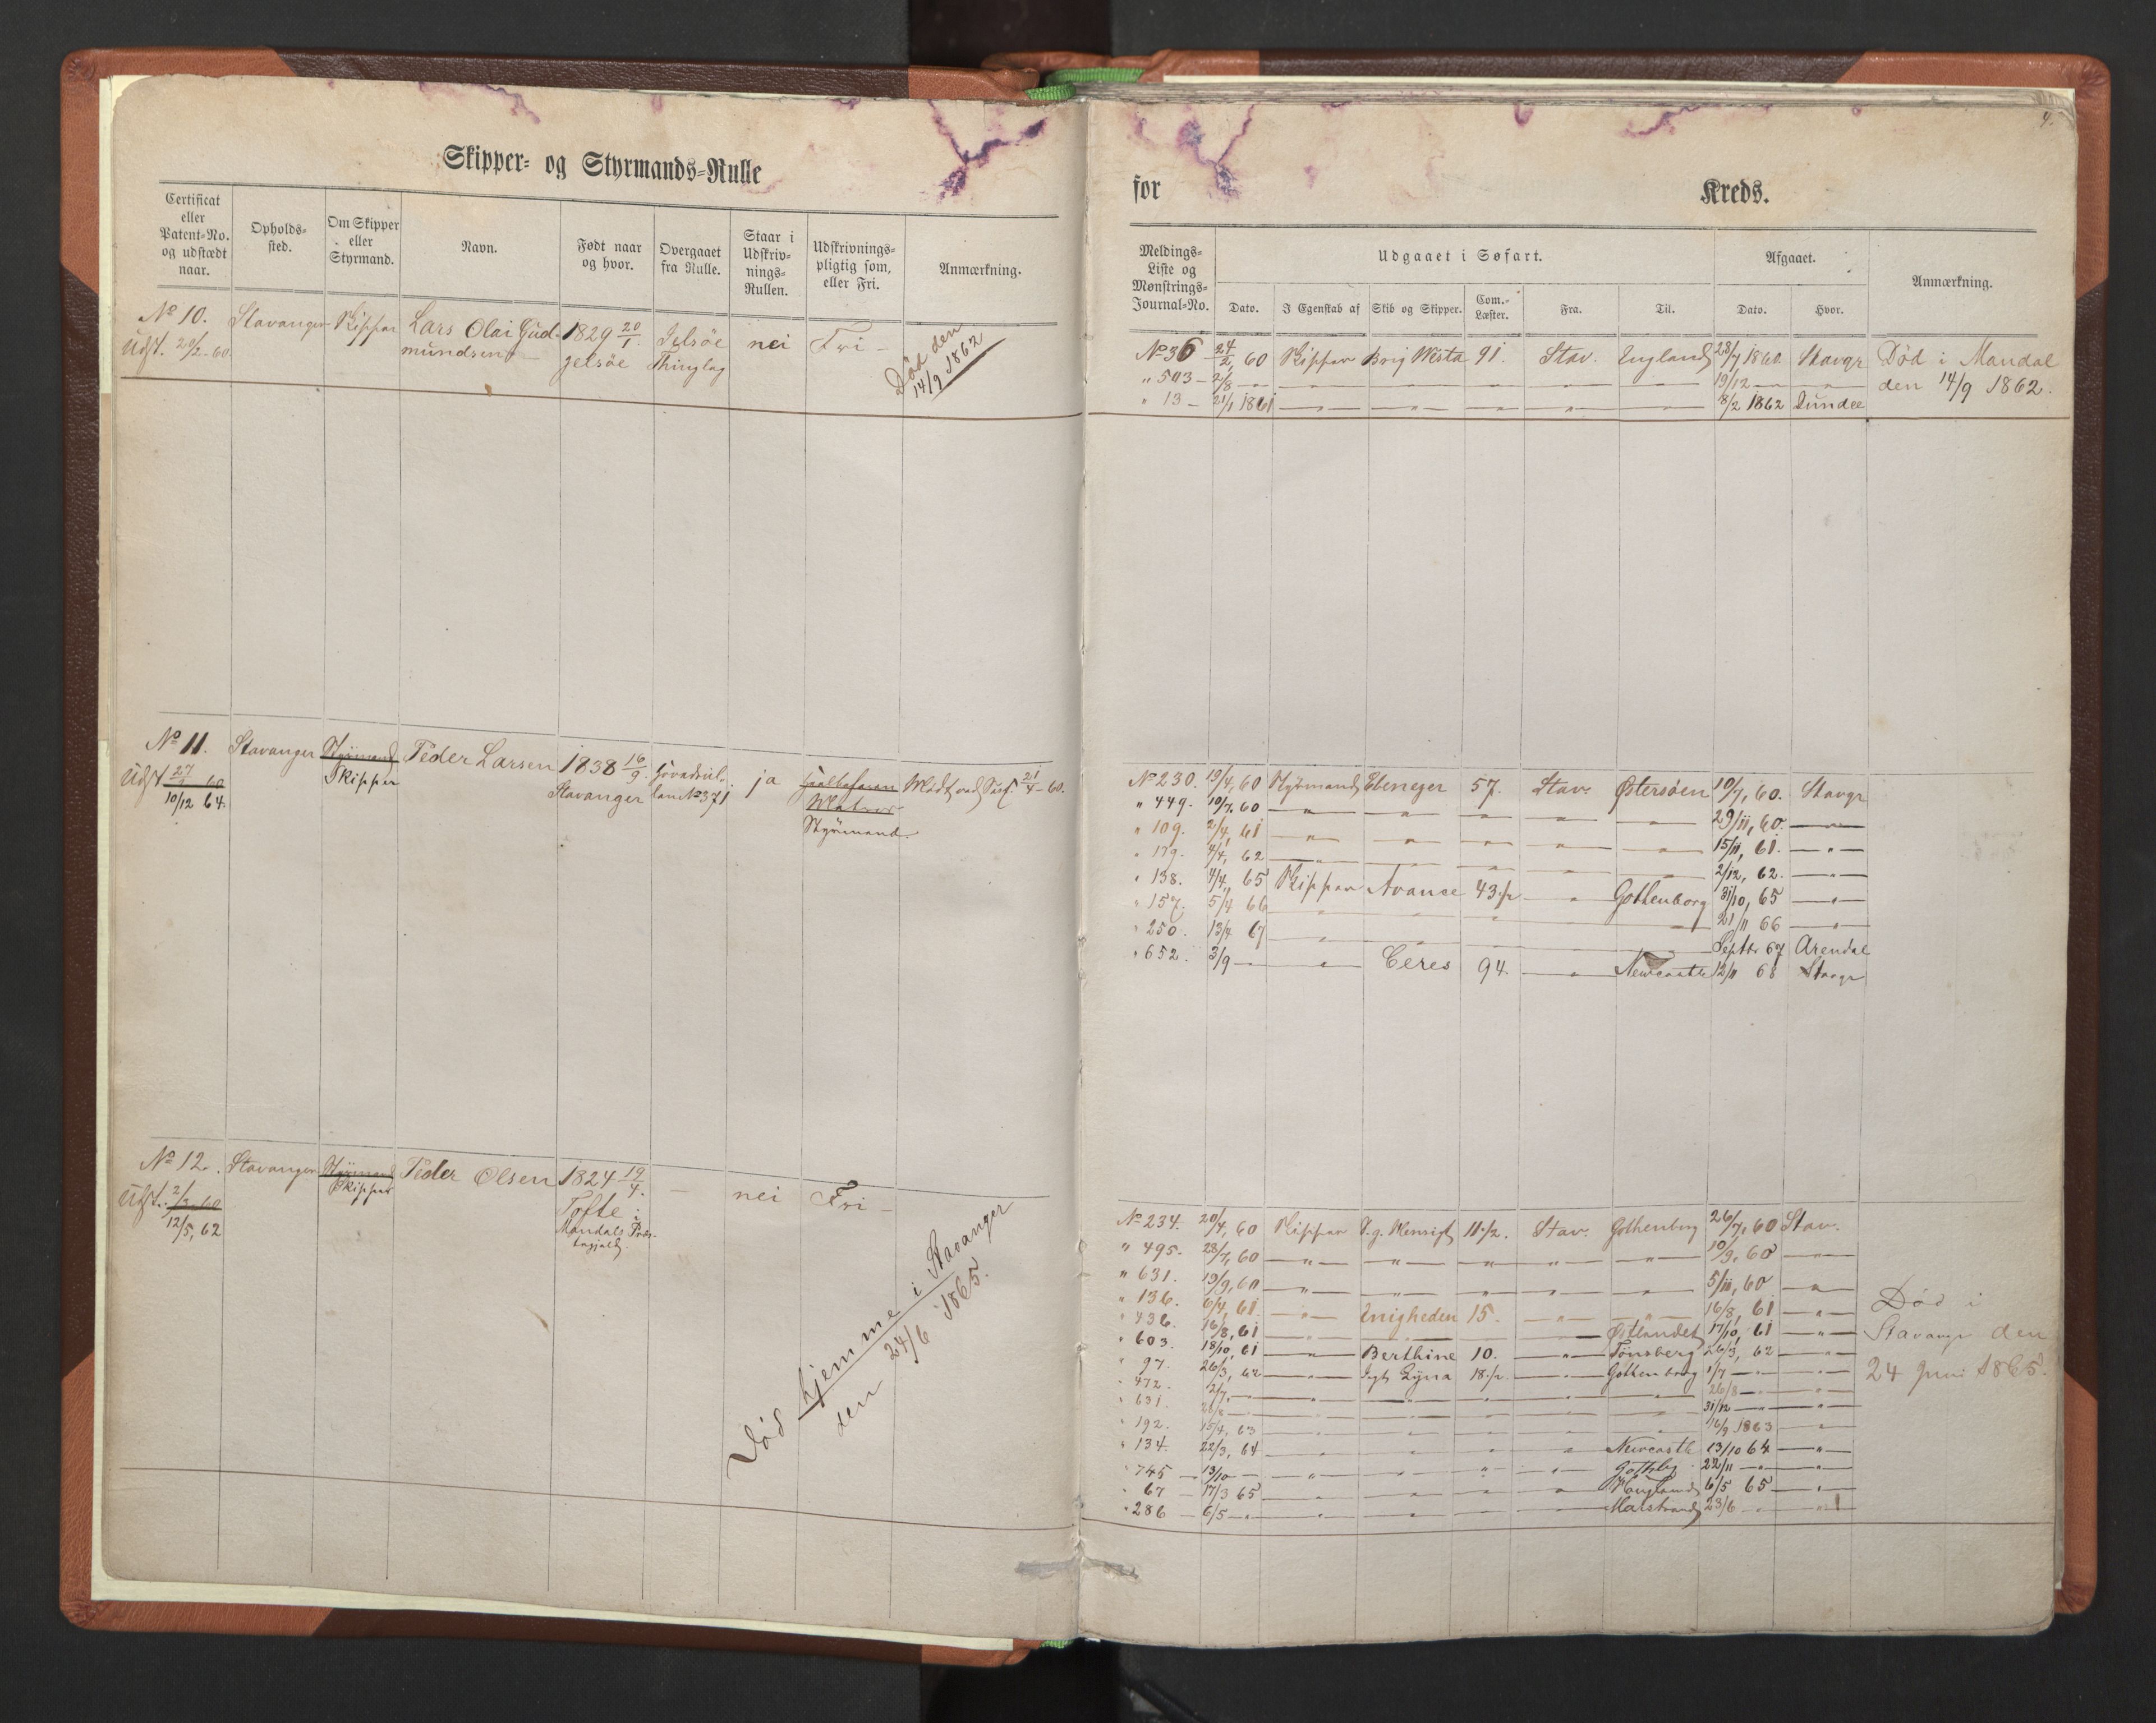 Skipper- og Styrmands-Rulle
Certificat eller Patent-No. og udstædt naar.
Opholds-sted.
Om Skipper eller Styrmand.
Navn.
Født naar og hvor.
Overgaaet fra Rulle.
Staar i Udskriv-nings-Rullen.
Udskrivnings-pligtig som, eller Fri.
Anmærkning.
No 10. Stavanger Skipper Lars Olai Gud- 1829 20/1. Jelsöe nei Fri – Død den
Udst. 20/2-60. mundsen Jelsöe Thinglag 14/9 1862
No 11. Stavanger Styrmand Peder Larsen 1838 16/9. ja
Udst. 27/2 60 Skipper Stavanger No 371 Matros 21/4-60.
10/12 64. Styrmand.
No 12. Stavanger Styrmand Peder Olsen 1824 19/4. – nei Fri –
Udst. 2/3 60 Skipper Tofte i
12/5, 62 Mandals Præs-
tegjeld
Død hjemme i Stavanger
den 24/6 1865.
4.
for Kreds.
Meldings-Liste og Mønstrings-Journal-No.
Udgaaet i Søfart.
Afgaaet.
Anmærkning.
Dato.
I Egenskab af
Skib og Skipper.
Com.-Læster.
Fra.
Til.
Dato.
Hvor.
No 36 24/2, 60 Skipper Brig Vesta 91. Stav. England 28/7 1860. Stavgr Død i Mandal
" 503 – 2/8 — " — " — " — " — " — 19/12 — " — " — den 14/9 1862.
" 13 – 21/1 1861 — " — " — " — " — " — 8/2 1862 Dundee
No 230. 19/4, 60 Styrmand Ebenezer 57. Stav. Østersöen 10/7, 60. Stavgr
" 449. 10/7, 60 — " — " — " — " — " — 29/11, 60. — " —
" 109. 2/4, 61 — " — " — " — " — " — 15/11, 61. — " —
" 179. 4/4, 62 — " — " — " — " — " — 2/12, 62. — " —
" 138. 4/4, 65 Skipper Avance 43 1/2 — " — Gothenborg 31/10, 65 — " —
" 157. 5/4 66 — " — " — " — " — " — 21/11 66 — " —
" 250. 13/4 67 — " — " — " — " — " — Septbr 67 Arendal
" 652. 3/9 — " — Ceres 94. — " — Newcastle 12/11 68 Stavgr
No 234. 20/4, 60 Skipper 11 1/2. Stav. Gothenborg 26/7, 60 Stav.
" 495. 28/7, 60 — " — " — " — " — " — 10/9, 60 — " —
" 631. 19/9, 60 — " — " — " — " — " — 5/11, 60 — " —
" 136. 6/4, 61. — " — Enigheden 15. — " — " — 16/8, 61 — " — Død i
" 436. 16/8, 61 — " — " — " — " — Østlandet 17/10, 61 — " — Stavangr den
" 603. 18/10, 61 — " — Berthine 10. — " — Tønsberg 26/3, 62 — " — 24 Juni 1865.
" 97. 26/3, 62 — " — Jagt 18 1/2. — " — Gothenborg 1/7 — " — " —
" 472. 2/7. — " — " — " — " — " — 26/8 — " — " —
" 631. 26/8 — " — " — " — " — " — 31/12 — " — " —
" 192. 15/4, 63 — " — " — " — " — " — 16/9 1863 — " —
" 134. 22/3, 64 — " — " — " — " — Newcastle 13/10 64 — " —
" 745 — 13/10 — " — " — " — " — Gothbg. 22/11 — " — " —
" 67 – 17/3 65 — " — " — " — " — 6/5 65 — " —
" 286 – 6/5 — " — " — " — " — Marstrand 23/6 — " — " —